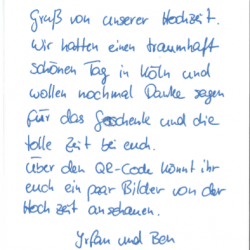 Gruß von unserer Hochzeit.
Wir hatten einen traumhaft
schönen Tag in Köln und
wollen nochmal Danke sagen
für das Geschenke und die
tolle Zeit bei euch.
Über den QR-Code könnt ihr
euch ein paar Bilder von der
Hochzeit anschauen.
Irfan und Ben